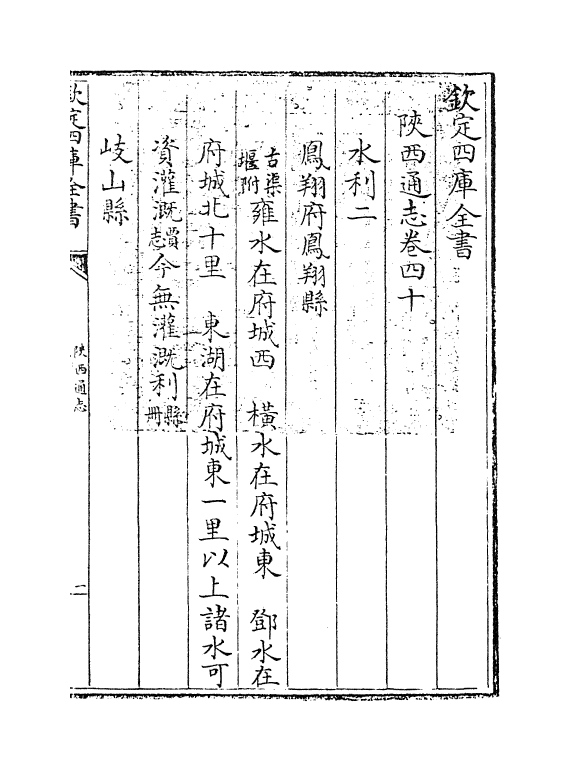 欽定四庫全書
陜西通志卷四十
水利二
鳳翔府鳳翔縣
古渠堰附雍水在府城西　橫水在府城東　鄧水在
府城北十里　東湖在府城東一里以上諸水可
資灌溉賈志今無灌溉利縣冊
岐山縣
欽定四庫全書
陜西通志